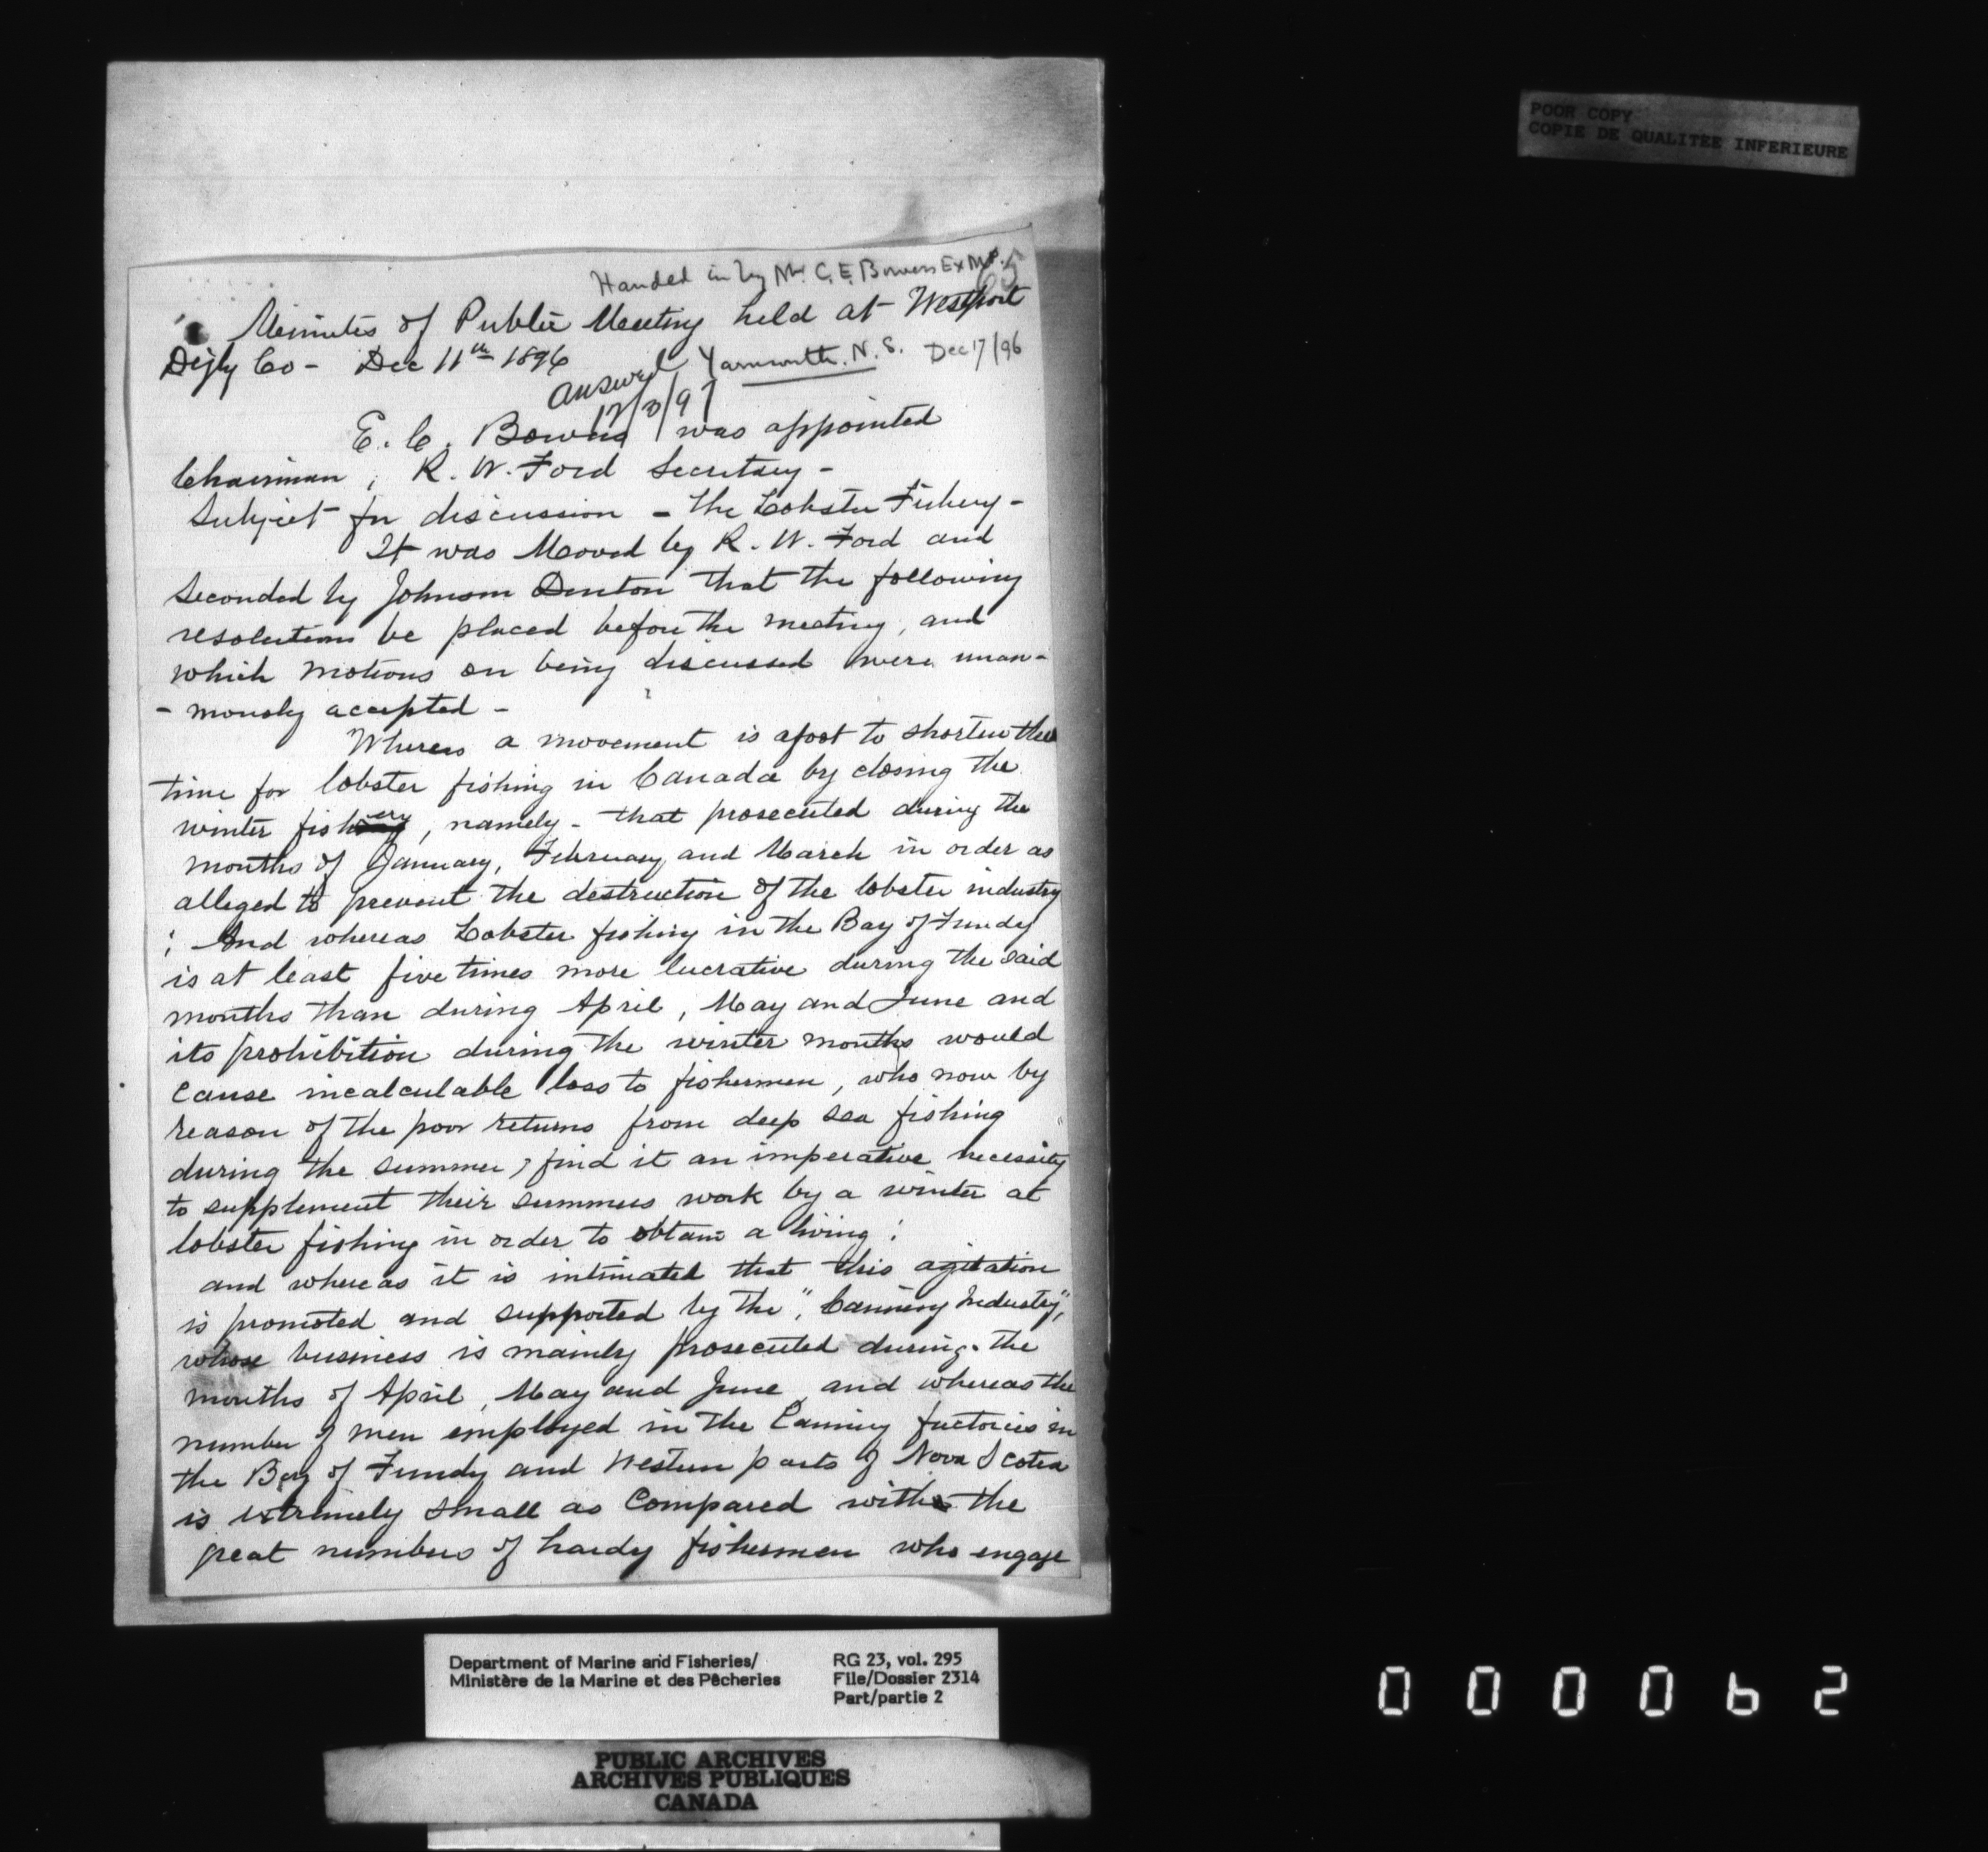 POOR COPY
COPIE DE QUALITEE INFERIEURE
Handed in by Mr C. E. Bowers Ex M.P.
65
Minutes of Public Meeting held at Westport
Digby Co - Dec 11th 1896
Yarmouth. N. S. Dec 17/96
answered
17/3/97
E. C. Bowers was appointed
Chairman ; R. W. Ford Secretary -
Subject for discussion - The Lobster Fishery -
It was Moved by R. W. Ford and
Seconded by Johnson Denton that the following
resolutions be placed before the meeting, and
which motions on being discussed were unan-
- mously accepted -
Whereas a movement is afoot to shorten the
time for lobster fishing in Canada by closing the
winter fishery, namely - that prosecuted during the
months of January, February and March in order as
alleged to prevent the destruction of the lobster industry
; And whereas Lobster fishing in the Bay of Fundy
is at least five times more lucrative during the said
months than during April, May and June and
its prohibition during the winter months would
cause incalculable loss to fishermen, who now by
reason of the poor returns from deep sea fishing
during the summer, find it an imperative necessity
to supplement their summers work by a winter at
lobster fishing in order to obtain a living ;
and whereas it is intimated that this agitation
is promoted and supported by the "Cannery Industry",
whose business is mainly prosecuted during the
months of April, May and June, and whereas the
number of men employed in the Canning factories in
the Bay of Fundy and Western parts of Nova Scotia
is extremely small as compared with the
great numbers of hardy fishermen who engage
Department of Marine and Fisheries/
Ministère de la Marine et des Pêcheries
RG 23, vol. 295
File/Dossier 2314
Part/partie 2
PUBLIC ARCHIVES
ARCHIVES PUBLIQUES
CANADA
000062